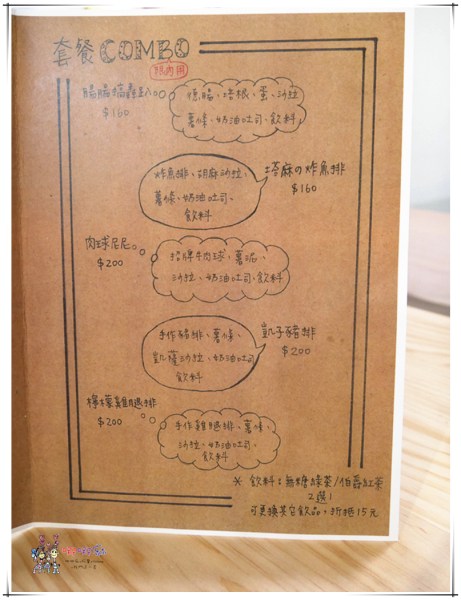 套餐 COMBO
腸腸蹣趴
$160
德腸、培根、蛋、沙拉
薯條、奶油吐司、飲料
炸魚排、胡麻沙拉、
薯條、奶油吐司、
飲料
塔麻の炸魚排
$160
肉球尼尼
$200
招牌牛肉球、薯泥、
沙拉、奶油吐司、飲料
手作豬排、薯條、
凱薩沙拉、奶油吐司
飲料
凱子豬排
$200
檸檬雞腿排
$200
手作雞腿排、薯條、
沙拉、奶油吐司、
飲料
※ 飲料：無糖綠茶/伯爵紅茶
2選1
可更換其它飲品，折抵15元